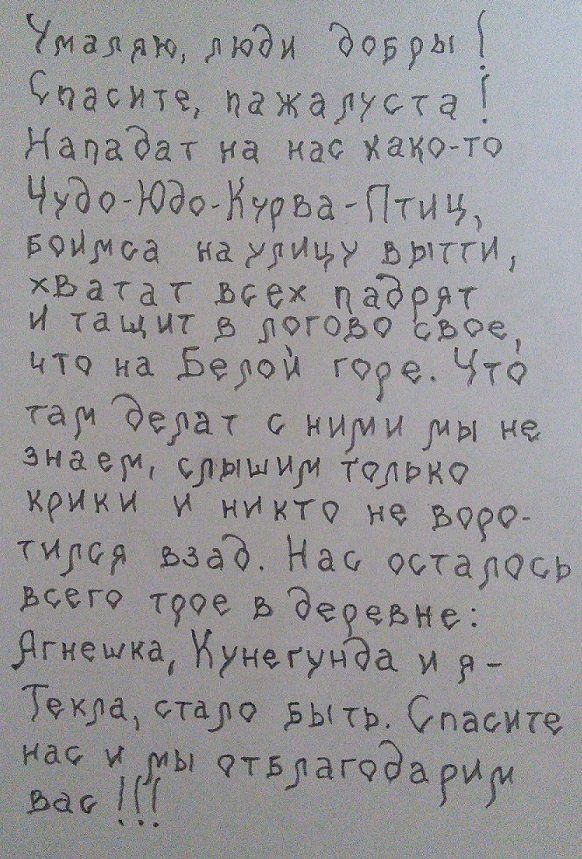 Умаляю, люди добры!
Спасите, пажалуста!
Нападат на нас како-то
Чудо-Юдо-Курва-Птиц,
боимса на улицу вытти,
хватат всех падрят
и тащит в логово свое,
что на Белой горе. Что
там делат с ними мы не
знаем, слышим только
крики и никто не воро-
тился взад. Нас осталось
всего трое в деревне:
Ягнешка, Кунегунда и я-
Текла, стало быть. Спасите
нас и мы отблагодарим
вас!!!